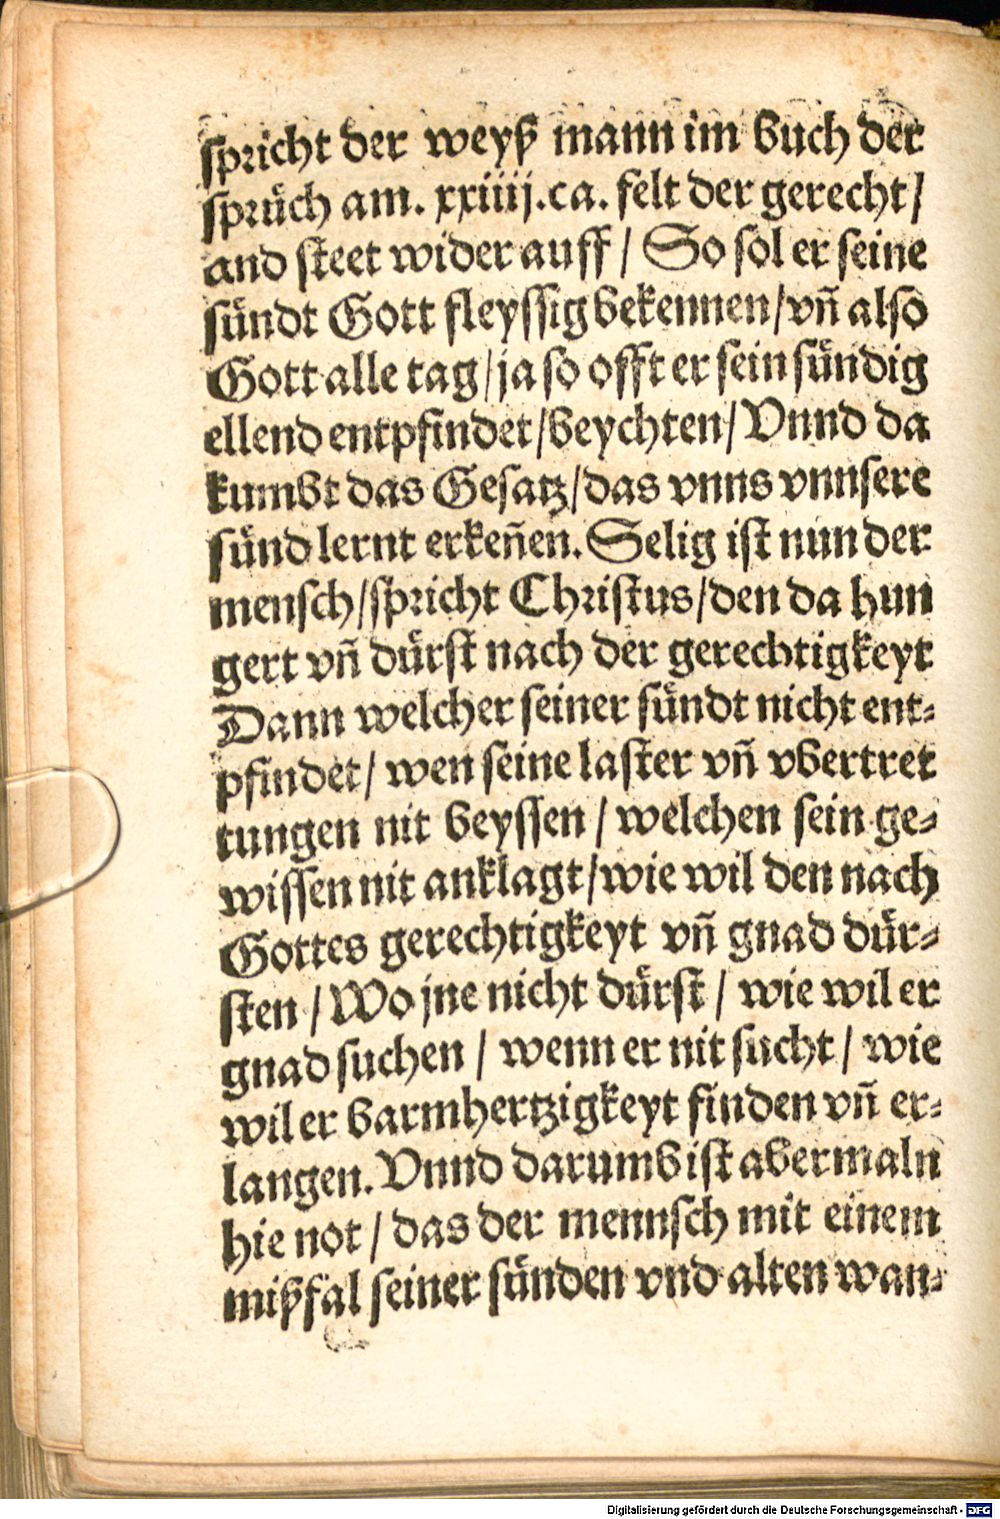 spricht der weyß mann im buch der
sprüch am. xxiiij.ca. felt der gerecht/
and steet wider auff / So sol er seine
sündt Gott fleyssig bekennen/vñ also
Gott alle tag/ja so offt er sein sündig
ellend entpfindet/beychten/Vnnd da
kumbt das Gesatz/das vnns vnnsere
sünd lernt erkeñen. Selig ist nun der
mensch/spricht Christus/den da hun
gert vñ dürst nach der gerechtigkeyt
Dann welcher seiner sündt nicht ent-
pfindet/ wen seine laster vñ vbertret
tungen nit beyssen / welchen sein ge-
wissen nit anklagt/wie wil den nach
Gottes gerechtigkeyt vñ gnad dür-
sten / Wo jne nicht dürst / wie wil er
gnad suchen / wenn er nit sucht / wie
wil er barmhertzigkeyt finden vñ er-
langen. Vnnd darumb ist abermaln
hie not / das der mennsch mit einem
mißfal seiner sünden vnd alten wan-
Digitalisierung gefördert durch die Deutsche Forschungsgemeinschaft - DFG